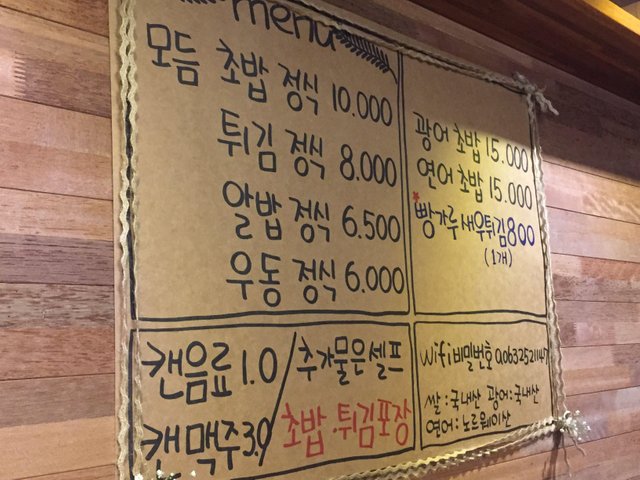 menu
모듬 초밥 정식 10.000
튀김 정식 8.000
알밥 정식 6.500
우동 정식 6.000
광어 초밥 15.000
연어 초밥 15.000
*빵가루새우튀김 800
(1개)
캔음료 1.0
캔맥주 3.0
추가물은셀프
초밥.튀김포장
wifi 비밀번호 00632521147
쌀:국내산 광어:국내산
연어:노르웨이산